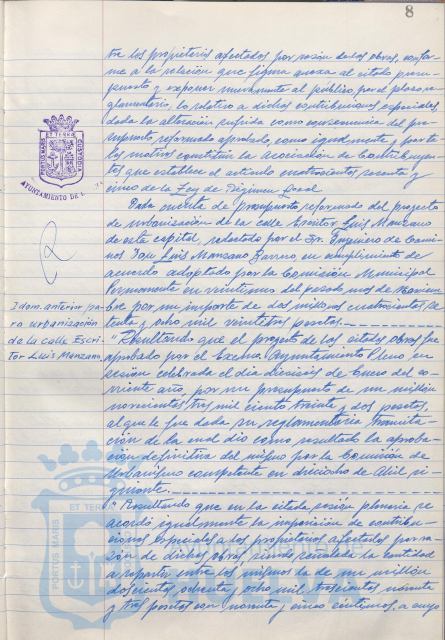 8
tre los propietarios afectados por razón de las obras, confor-
me a la relación que figura anexa al citado presu-
puesto y exponer nuevamente al público por el plazo re-
glamentario, lo relativo a dichas contribuciones especiales
dada la alteración sufrida como consecuencia del pre-
supuesto reformado aprobado, como igualmente y por
los motivos constituir la Asociación de Contribuyen-
tes que establece el artículo cuatrocientos sesenta y
cinco de la Ley de Régimen Local.
PORTUS MARIS ET TERRAE CUSTODIA
AYUNTAMIENTO DE
Dada cuenta de Presupuesto reformado del proyecto
de urbanización de la calle Escritor Luis Manzano
de esta capital, redactado por el Sr. Ingeniero de Cami-
nos Don Luis Manzano en cumplimiento de
acuerdo adoptado por la Comisión Municipal
Permanente en veintiuno del pasado mes de Noviem-
Idem. anterior pa-
ra urbanización
de la calle Escri-
tor Luis Manzano.
bre por un importe de dos millones cuatrocientas se-
tenta y ocho mil veintitres pesetas.
"Resultando que el proyecto de las citadas obras fue
aprobado por el Excmo. Ayuntamiento Pleno en
sesión celebrada el día dieciseis de Enero del co-
rriente año, por un presupuesto de un millón
novecientas tres mil ciento treinta y dos pesetas,
al que le fue dada su reglamentaria tramita-
ción de la cual dio como resultado la aproba-
ción definitiva del mismo por la Comisión de
Urbanismo competente en dieciocho de Abril si-
guiente.
"Resultando que en la citada sesión plenaria se
acordó igualmente la imposición de contribu-
ciones especiales a los propietarios afectados por ra-
zón de dichas obras, siendo señalada la cantidad
a repartir entre los mismos la de un millón
doscientas ochenta y ocho mil trescientas noventa
y tres pesetas con noventa y cinco céntimos, a cuyo
PORTUS MARIS ET TERRAE